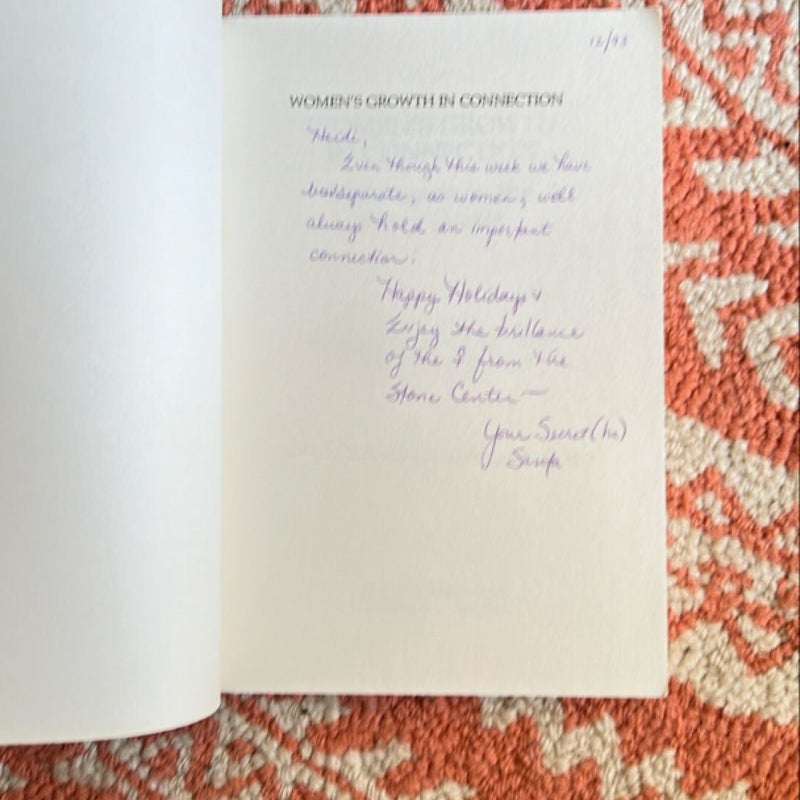 12/93
WOMEN'S GROWTH IN CONNECTION
Heidi,
Even though this week we have
been separate, as women, we'll
always hold an important
connection.
Happy Holidays &
Enjoy the brillance
of the ♀ from the
Stone Center —
Your Secret (ha)
Santa